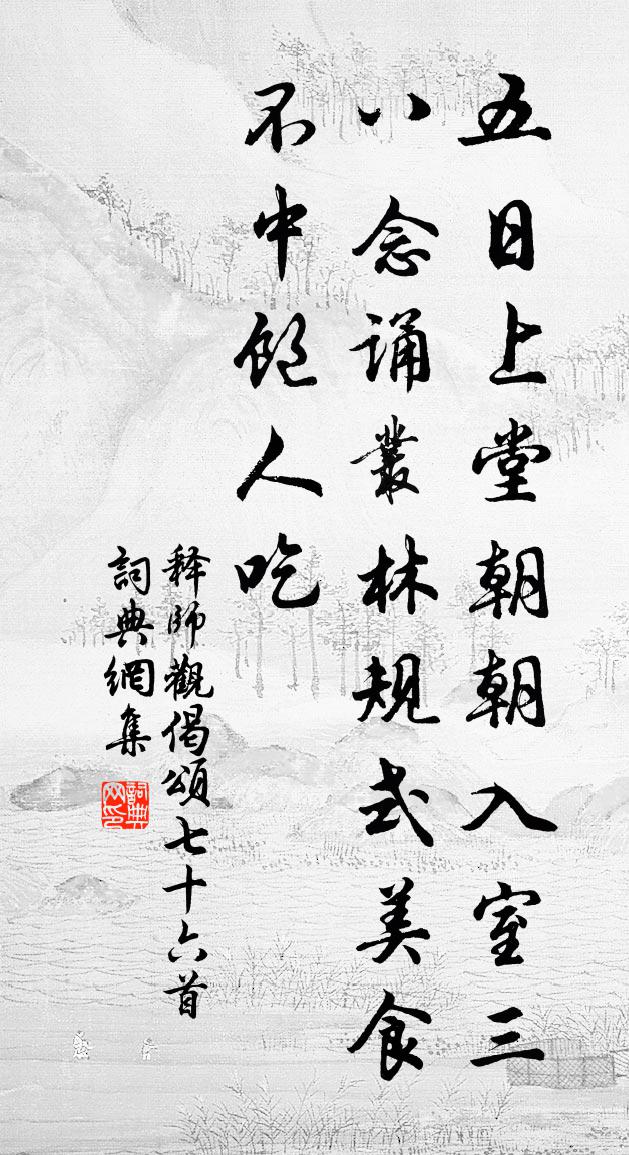 五日上堂朝朝入室三
八念诵叢林規式美食
不中飽人吃
释師觀偈頌七十六首
詞典網集
詞典网印